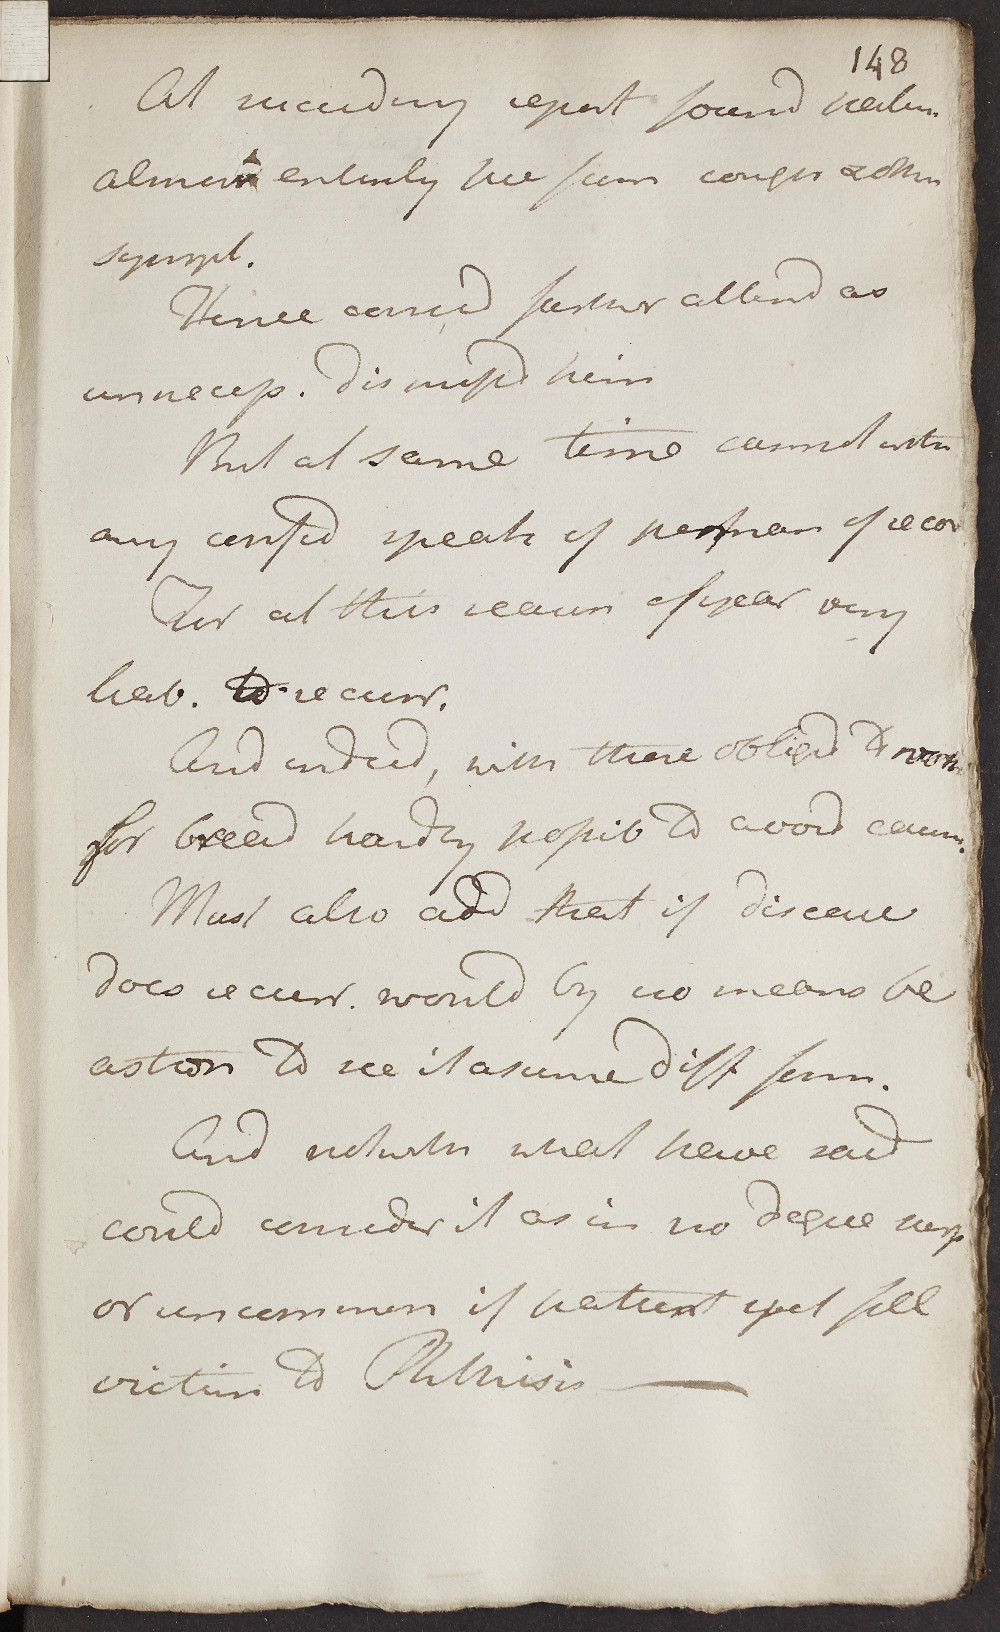 148
At succeeding report found patien
almost entirely free from cough & other
sympt.
Hence consid farther attend as
unnecess. dismissd him
But at same time cannot with
any confid speak of perman of recov
For at this season of year very
liab. to recurr.
And indeed, with those obliged to work
for bread hardly possib to avoid causes.
Must also add that if disease
does recurr. would by no means be
aston to see it assume diff form.
And notwith what have said
could consider it as in no degree surp
or uncommon if patient yet fell
victim to Phthisis —